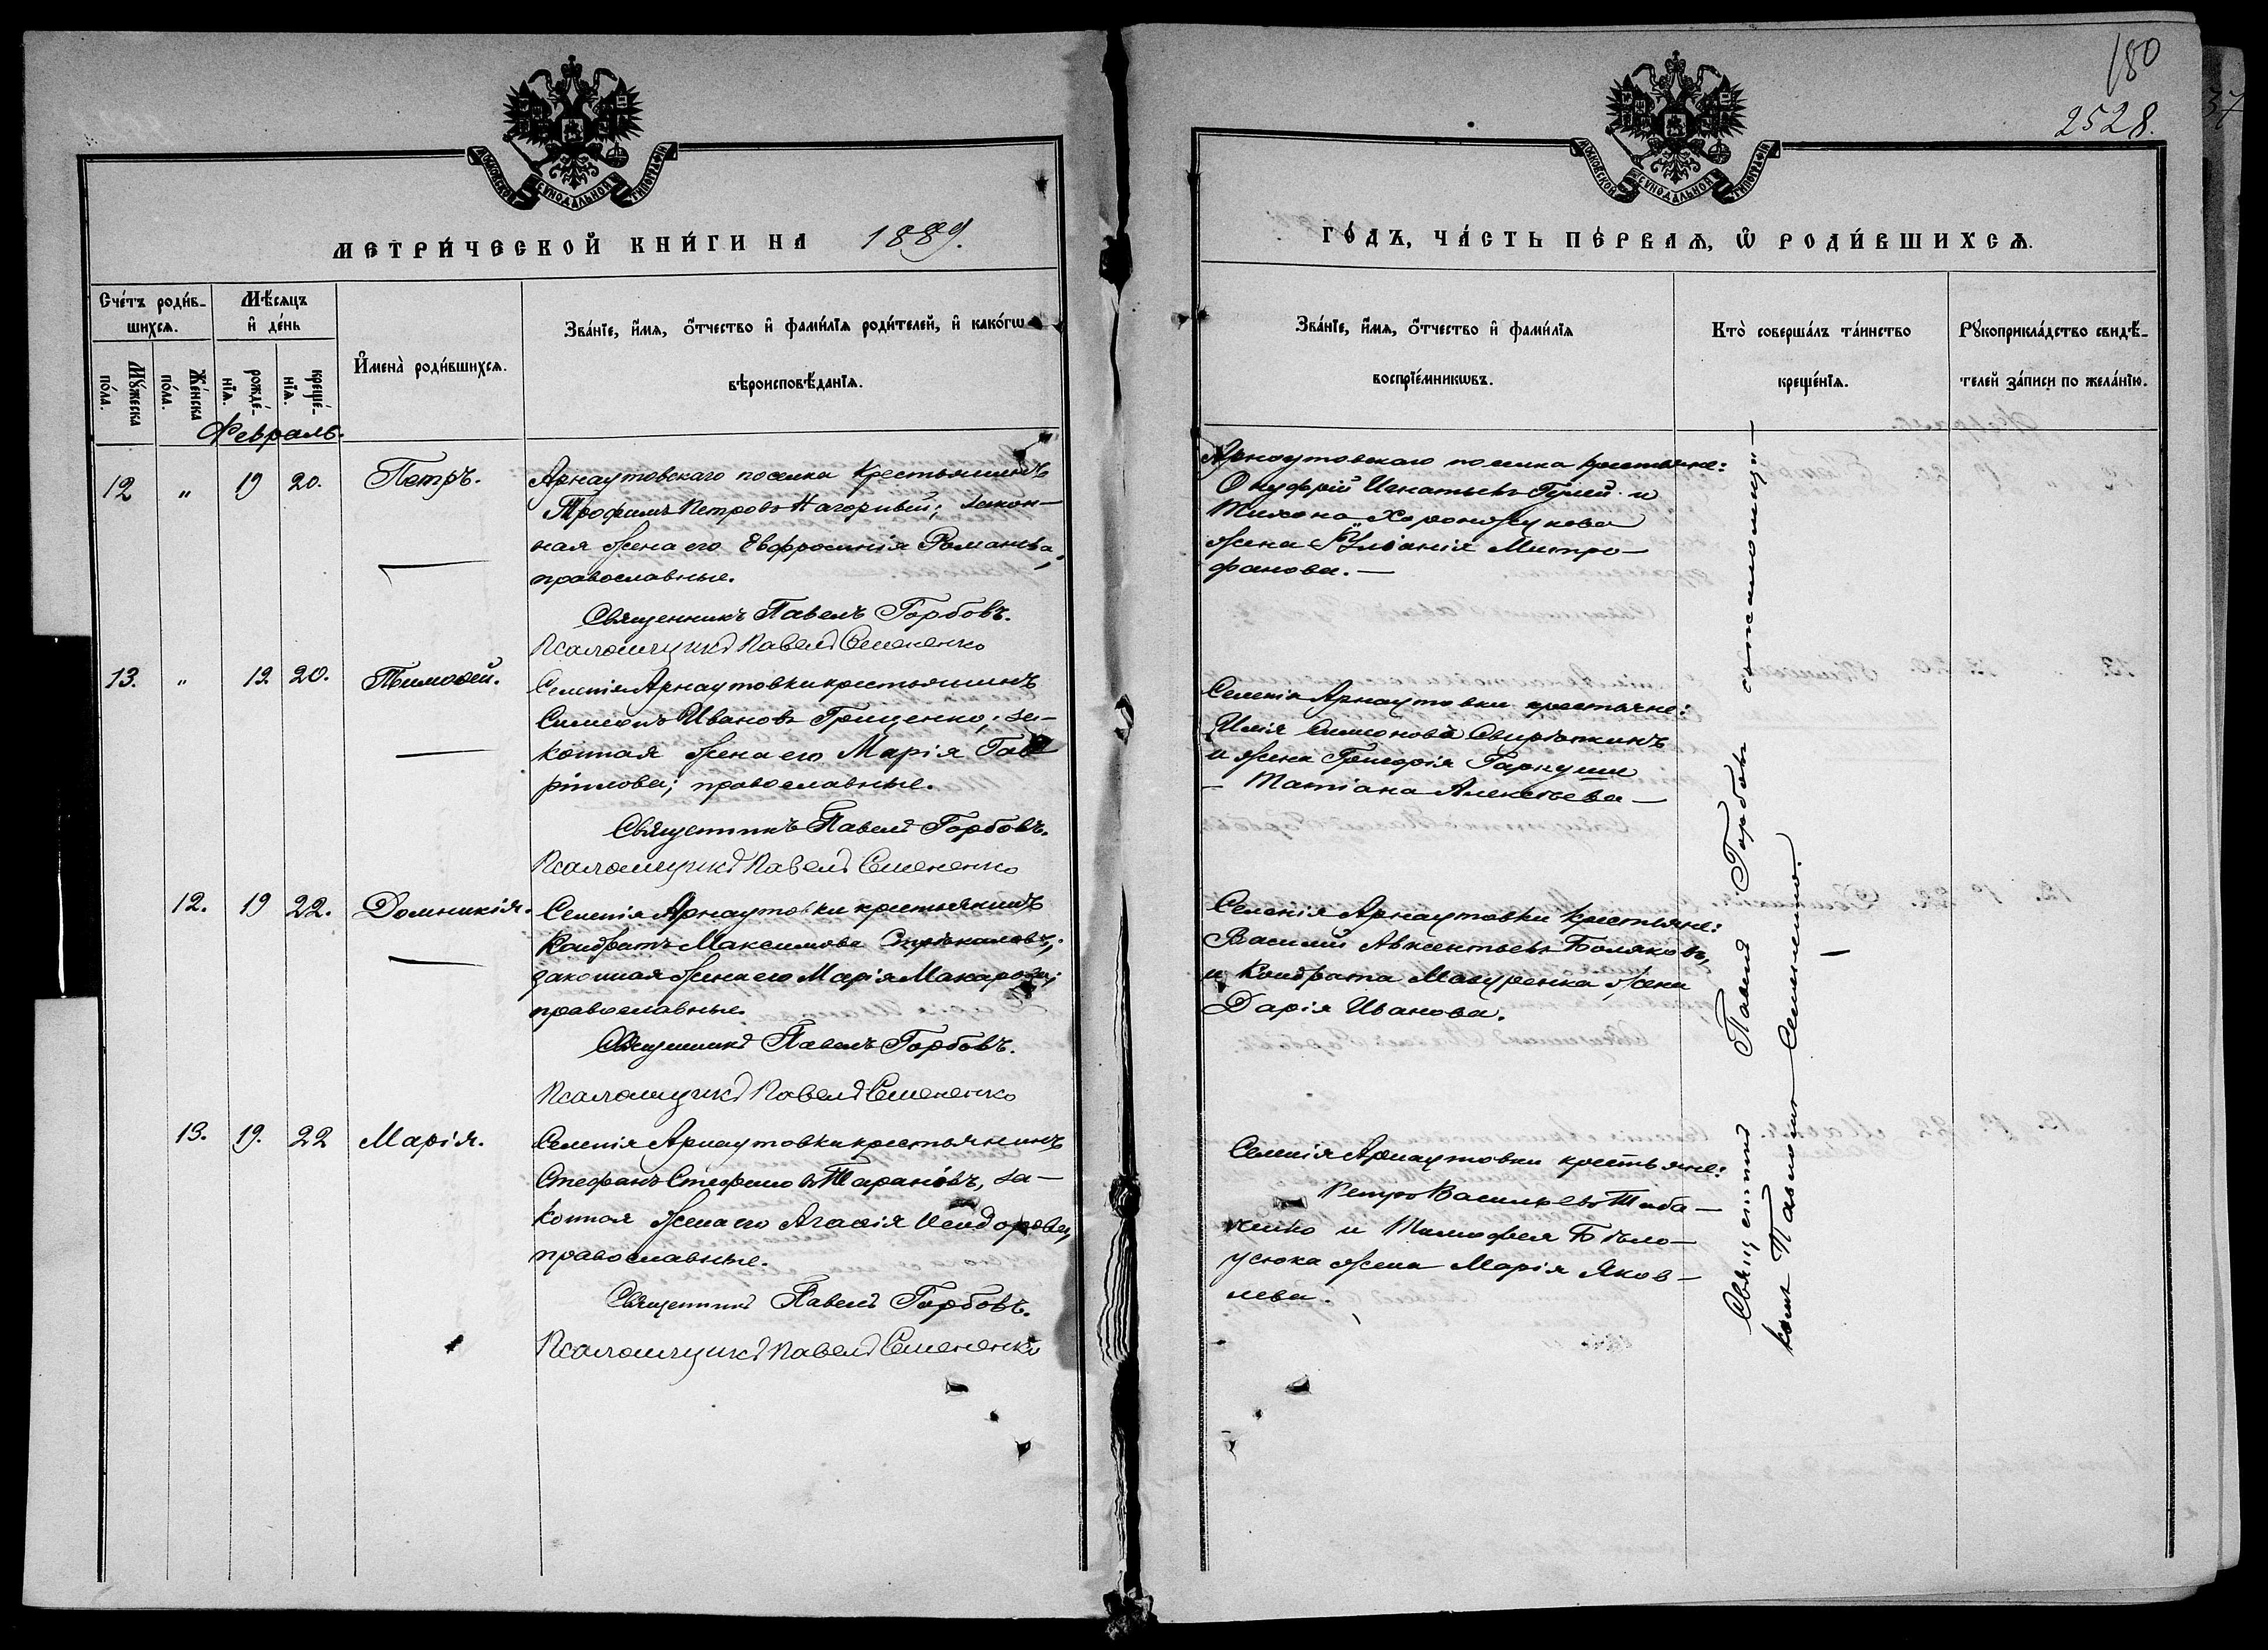 180
2528.
37
МОСКОВСКОЙ СѴНОДАЛЬНОЙ ТИПОГРАФІИ
МОСКОВСКОЙ СѴНОДАЛЬНОЙ ТИПОГРАФІИ
МЕТРИ́ЧЕСКОЙ КНИ́ГИ НА 1889.
ГО́ДЪ, ЧА́СТЬ ПЕ́РВАѦ, Ѡ РОДИ́ВШИХСѦ.
Сче́тъ роди́в-
шихсѧ.
Мꙋ́жеска по́ла.
Же́нска по́ла.
Мѣ́сяцъ
и҆ де́нь
рожде́-
нїѧ.
креще́-
нїѧ.
И҆мена̀ роди́вшихсѧ.
Зва́нїе, и҆́мѧ, ѻ҆́тчество и҆ фами́лїѧ роди́телей, и҆ како́гѡ
вѣроисповѣ́данїѧ.
Зва́нїе, и҆́мѧ, ѻ҆́тчество и҆ фами́лїѧ
воспрїе́мникѡвъ.
Кто̀ соверша́лъ та́инство
креще́нїѧ.
Рꙋкоприкла́дство свидѣ́-
телей за́писи по жела́нїю.
Февраль.
12 " 19 20. Петръ.
Арнаутовскаго поселка крестьянинъ
Трофимъ Петровъ Нагорный; закон-
ная жена его Евфросинія Романова,
православные.
Священникъ Павелъ Горбовъ.
Псаломщикъ Павелъ Семененко
Арнаутовскаго поселка крестьяне:
Онуфрій Игнатьевъ Гулей и
Тихона Хоронжукова
жена Іуліанія Митро-
фанова. —
13. " 19. 20. Тимоѳей.
Селенія Арнаутовки крестьянинъ
Симеонъ Ивановъ Грищенко; за-
конная жена его Марія Гав
ріилова; православные.
Священникъ Павелъ Горбовъ.
Псаломщикъ Павелъ Семененко
Селенія Арнаутовки крестьяне:
Илія Симеоновъ
и жена Григорія Гаркуши
— Татіана Алексѣева —
12. 19 22. Домникія.
Селенія Арнаутовки крестьянинъ
Кондратъ Максимовъ Стрѣкаловъ;
законная жена его Марія Макарова;
православные.
Священникъ Павелъ Горбовъ.
Псаломщикъ Павелъ Семененко
Селенія Арнаутовки крестьяне:
Василій Авксентьевъ Боляковъ,
и Кондрата Мазуренка жена
Дарія Иванова.
13. 19. 22 Марія.
Селенія Арнаутовки крестьянинъ
Стефанъ Стефановъ Тарановъ, за-
конная жена его Агаѳія Исидорова,
православные.
Священникъ Павелъ Горбовъ.
Псаломщикъ Павелъ Семененко
Селенія Арнаутовки крестьяне:
Петръ Васильевъ Таба-
ченко и Тимофея Бѣло-
усюка жена Марія Яков-
лева.
Священникъ Павелъ Горбовъ съ псаломщи-
комъ Павломъ Семененко. —